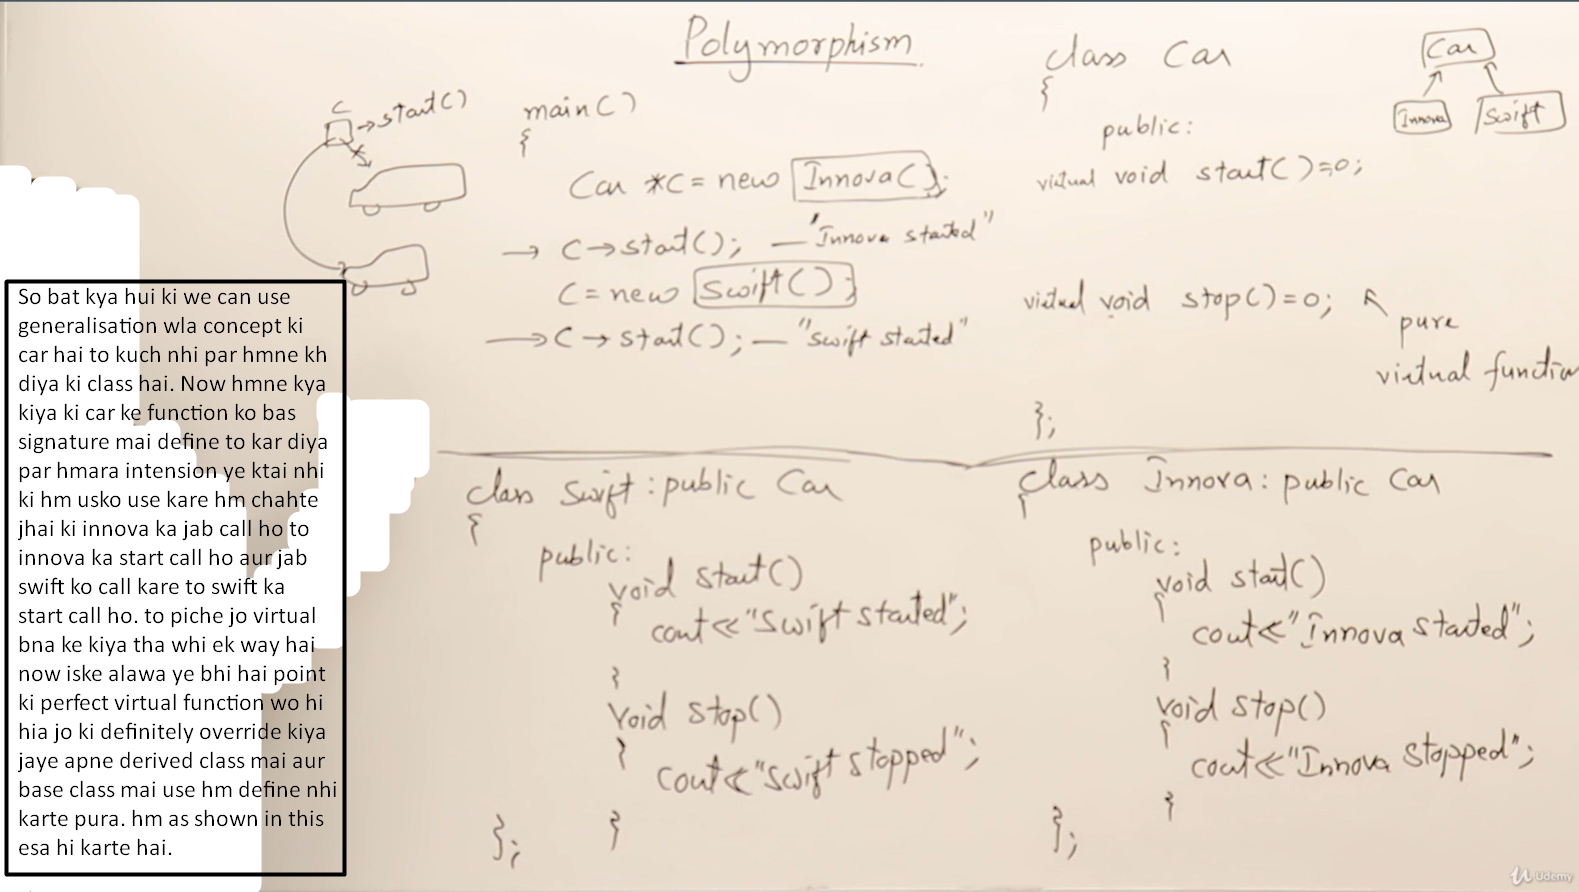 Polymorphism
C
→start()
main()
{
Car *C = new Innova();
→ C→start(); — "Innova started"
C = new Swift();
→ C→start(); — "Swift started"
class Car
{
public:
virtual void start()=0;
virtual void stop()=0;
pure
virtual function
};
Car
Innova
Swift
So bat kya hui ki we can use
generalisation wla concept ki
car hai to kuch nhi par hmne kh
diya ki class hai. Now hmne kya
kiya ki car ke function ko bas
signature mai define to kar diya
par hmara intension ye ktai nhi
ki hm usko use kare hm chahte
jhai ki innova ka jab call ho to
innova ka start call ho aur jab
swift ko call kare to swift ka
start call ho. to piche jo virtual
bna ke kiya tha whi ek way hai
now iske alawa ye bhi hai point
ki perfect virtual function wo hi
hia jo ki definitely override kiya
jaye apne derived class mai aur
base class mai use hm define nhi
karte pura. hm as shown in this
esa hi karte hai.
class Swift : public Car
{
public:
void start()
{
cout<<"Swift started";
}
void stop()
}
cout<<"Swift stopped";
}
};
class Innova : public Car
{
public:
void start()
{
cout<<"Innova started";
}
void stop()
{
cout<<"Innova stopped";
}
};
Udemy